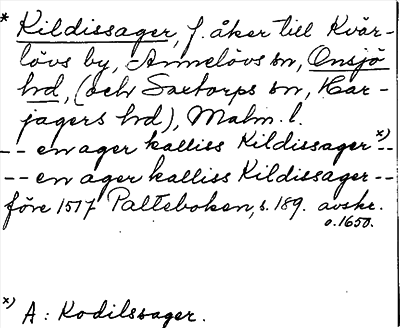 * Kildissager, f. åker till Kvär-
lövs by, Annelövs sn, Onsjö
hd, (och Saxtorps sn, Har-
jagers hd), Malm. l.
-- en ager kalliss Kildissager x) --
-- en ager kalliss Kildissager --
före 1517 Palteboken, s. 189. avskr.
o. 1650.
x) A: Kodilssager.